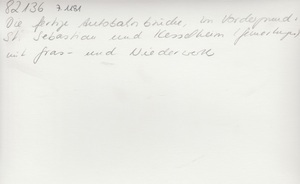 82136 7.1131
Die fertige Autobahnbrücke, im Vordergrund:
St. Sebastian und Kesselheim
mit Gras- und Niederwerth